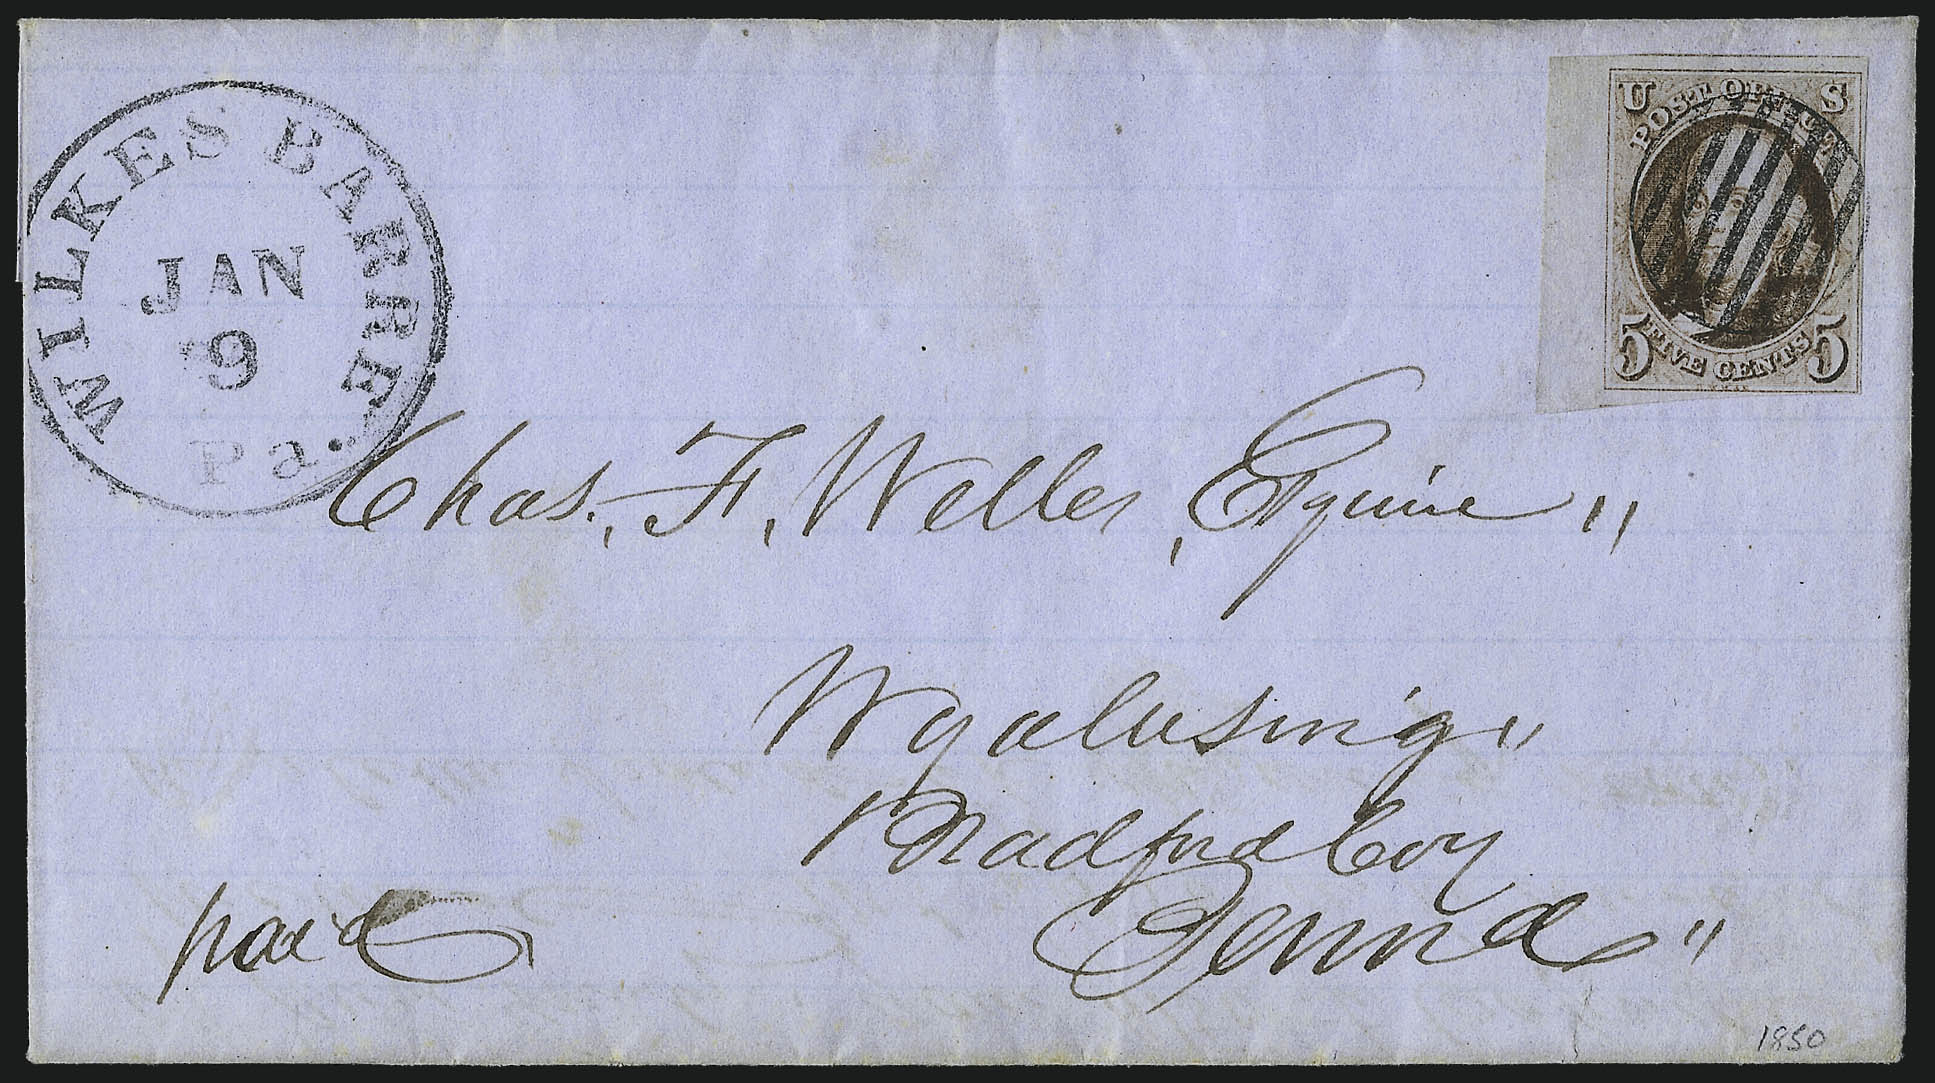 WILKES BARRE
JAN
9
Pa.
U S
POST OFFICE
5 FIVE CENTS 5
Chas. F. Welles, Esquire "
Wyalusing "
Bradford Coy
Penna "
paid
1850